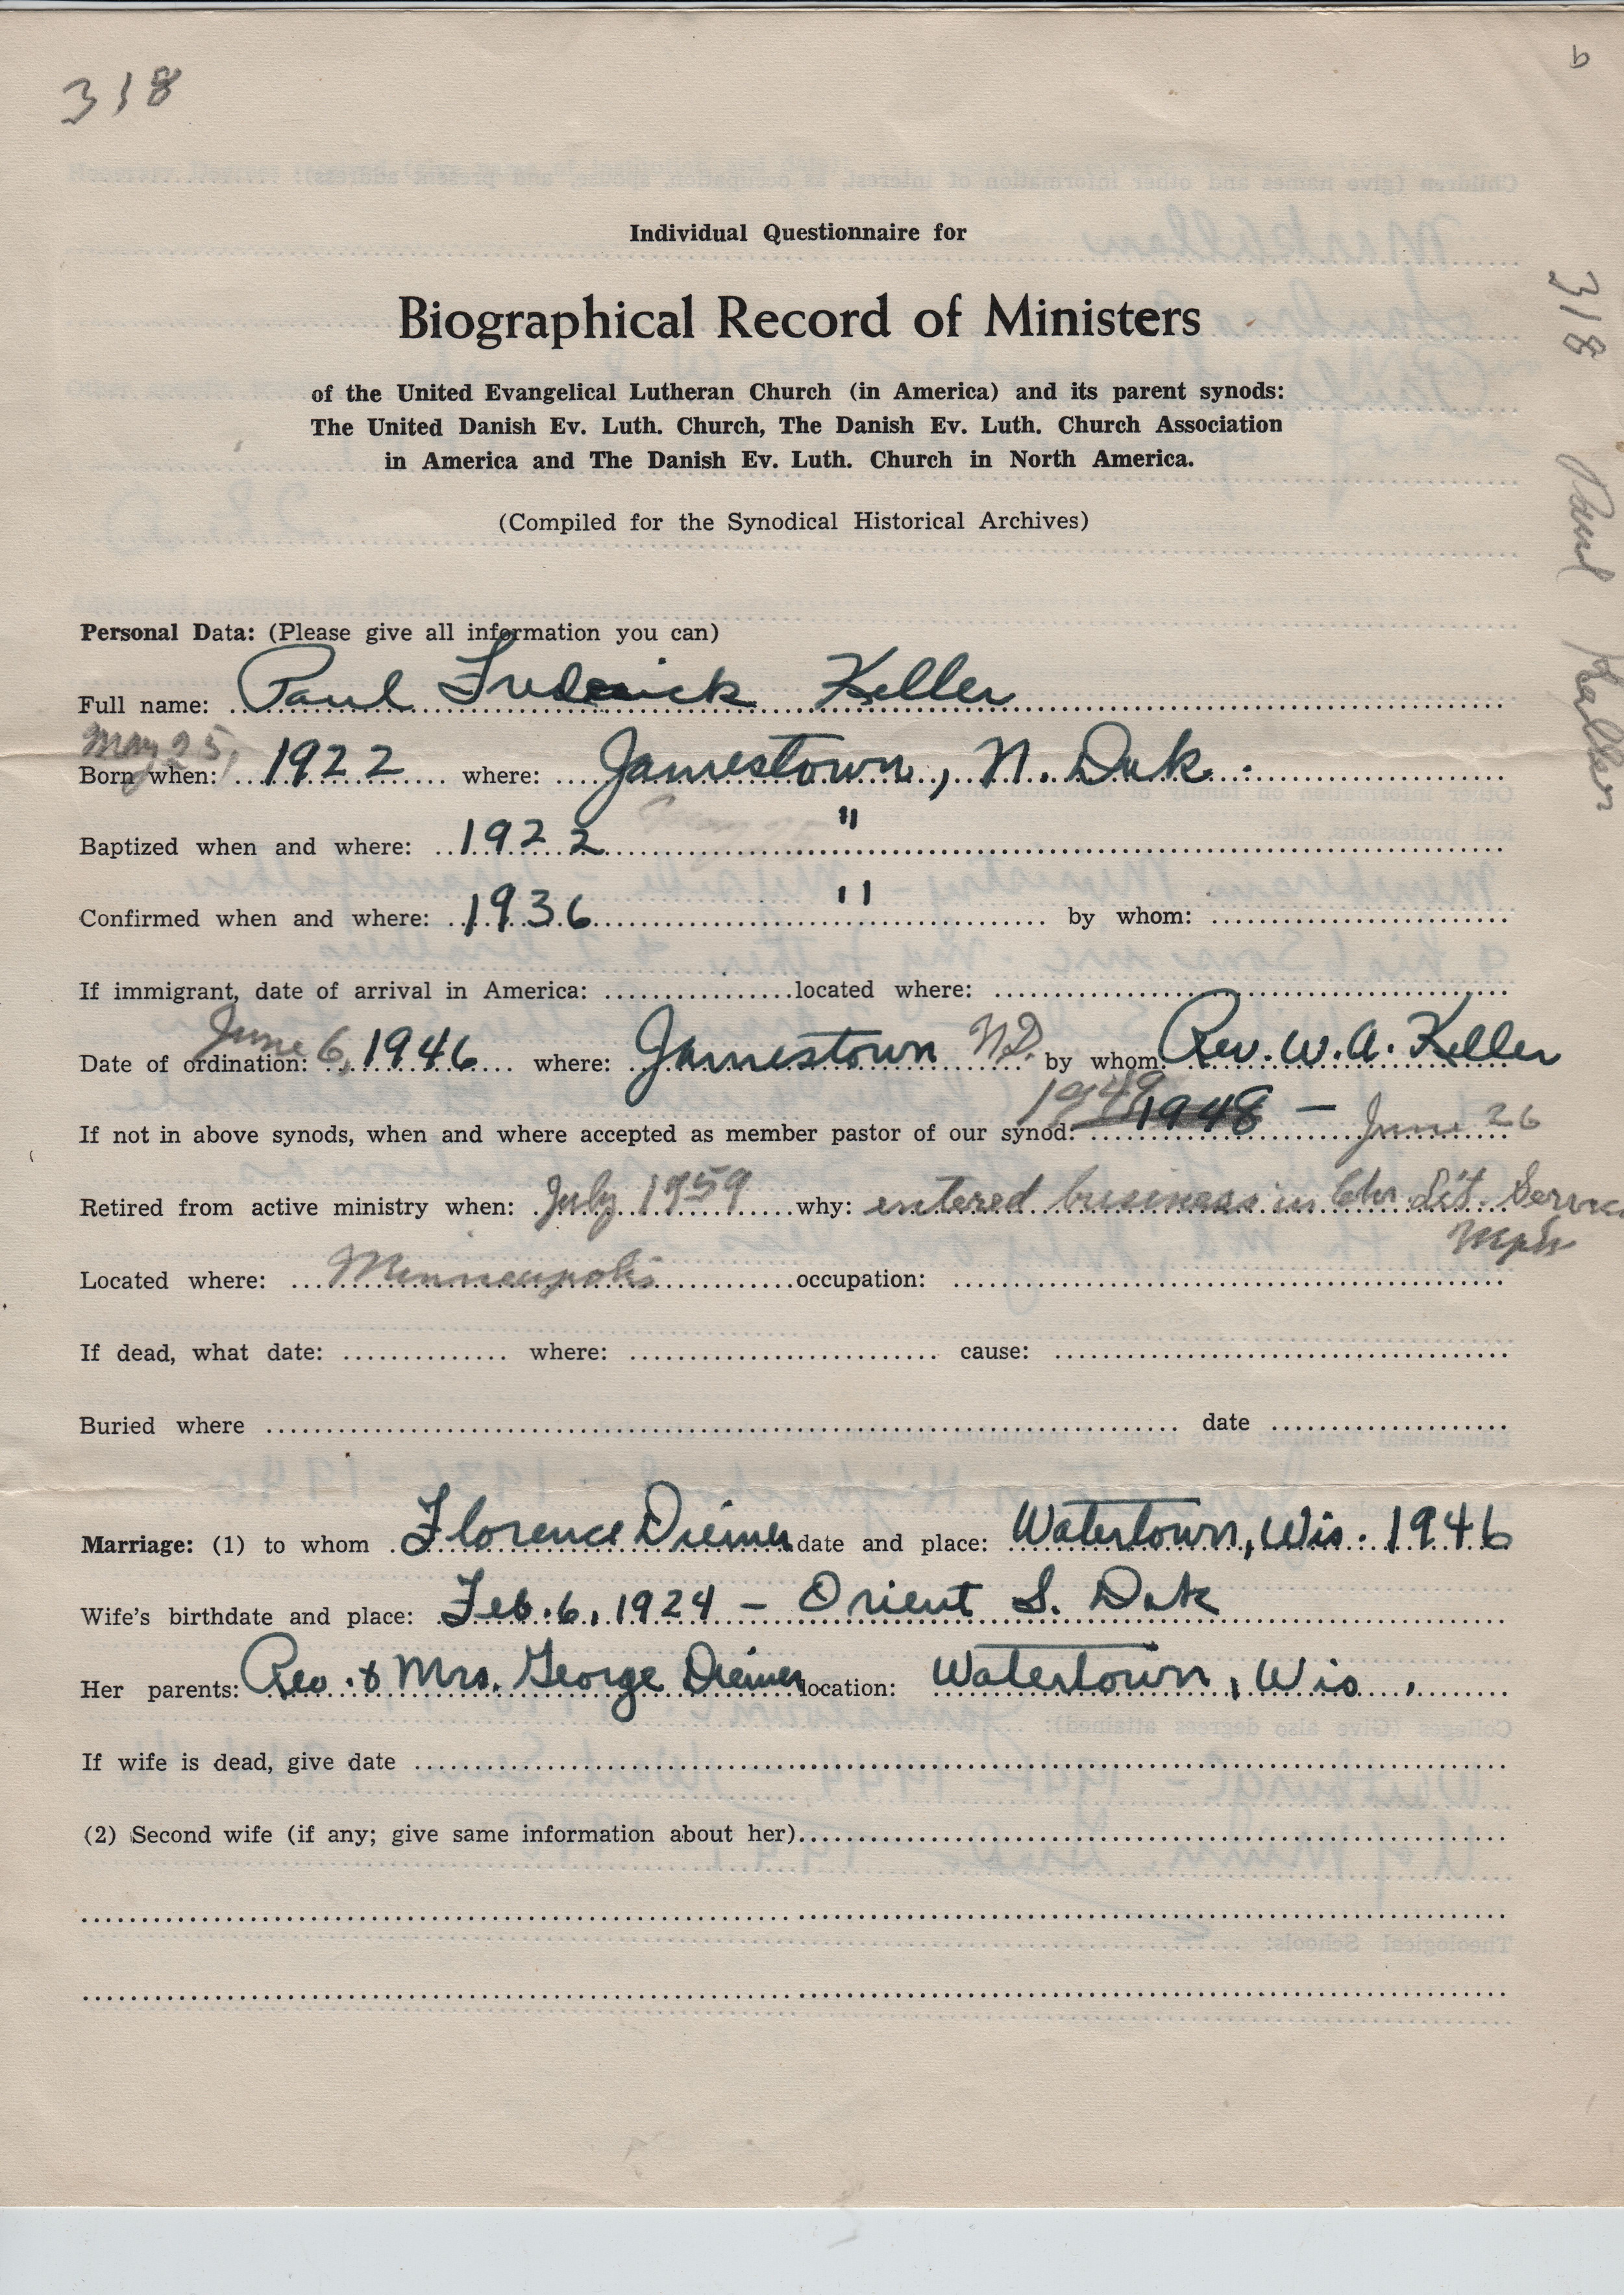 318
Individual Questionnaire for
Biographical Record of Ministers
of the United Evangelical Lutheran Church (in America) and its parent synods:
The United Danish Ev. Luth. Church, The Danish Ev. Luth. Church Association
in America and The Danish Ev. Luth. Church in North America.
(Compiled for the Synodical Historical Archives)
318 Paul Keller
Personal Data: (Please give all information you can)
Full name: Paul Frederick Keller
May 25,
Born when: 1922 where: Jamestown, N. Dak.
Baptized when and where: 1922 "
Confirmed when and where: 1936 " by whom:
If immigrant, date of arrival in America: located where:
Date of ordination: June 6, 1946 where: Jamestown N.D. by whom: Rev. W. A. Keller
If not in above synods, when and where accepted as member pastor of our synod: 1949 1948 — June 26
Retired from active ministry when: July 1959 why: entered business in Chr Lit. Service
Mpls
Located where: Minneapolis occupation:
If dead, what date: where: cause:
Buried where date
Marriage: (1) to whom Florence Diemer date and place: Watertown, Wis. 1946
Wife's birthdate and place: Feb. 6, 1924 — Orient S. Dak
Her parents: Rev. & Mrs. George Diemer location: Watertown, Wis.
If wife is dead, give date
(2) Second wife (if any; give same information about her)